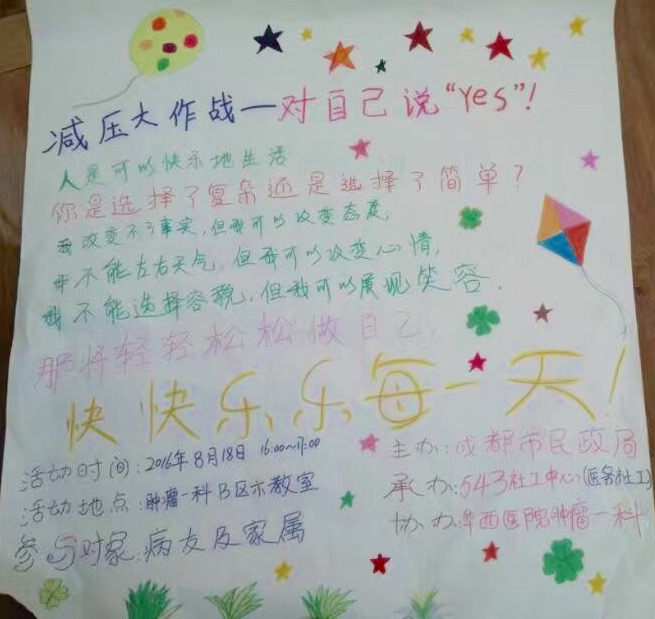 减压大作战—对自己说“Yes”!
人是可以快乐地生活
你是选择了复杂还是选择了简单?
我改变不了事实,但我可以改变态度,
我不能左右天气,但我可以改变心情,
我不能选择容貌,但我可以展现笑容.
那将轻轻松松做自己,
快快乐乐每一天!
活动时间:2016年8月18日 16:00~17:00
活动地点:肿瘤一科B区示教室
参与对象:病友及家属
主办:成都市民政局
承办:543社工中心(医务社工)
协办:华西医院肿瘤一科